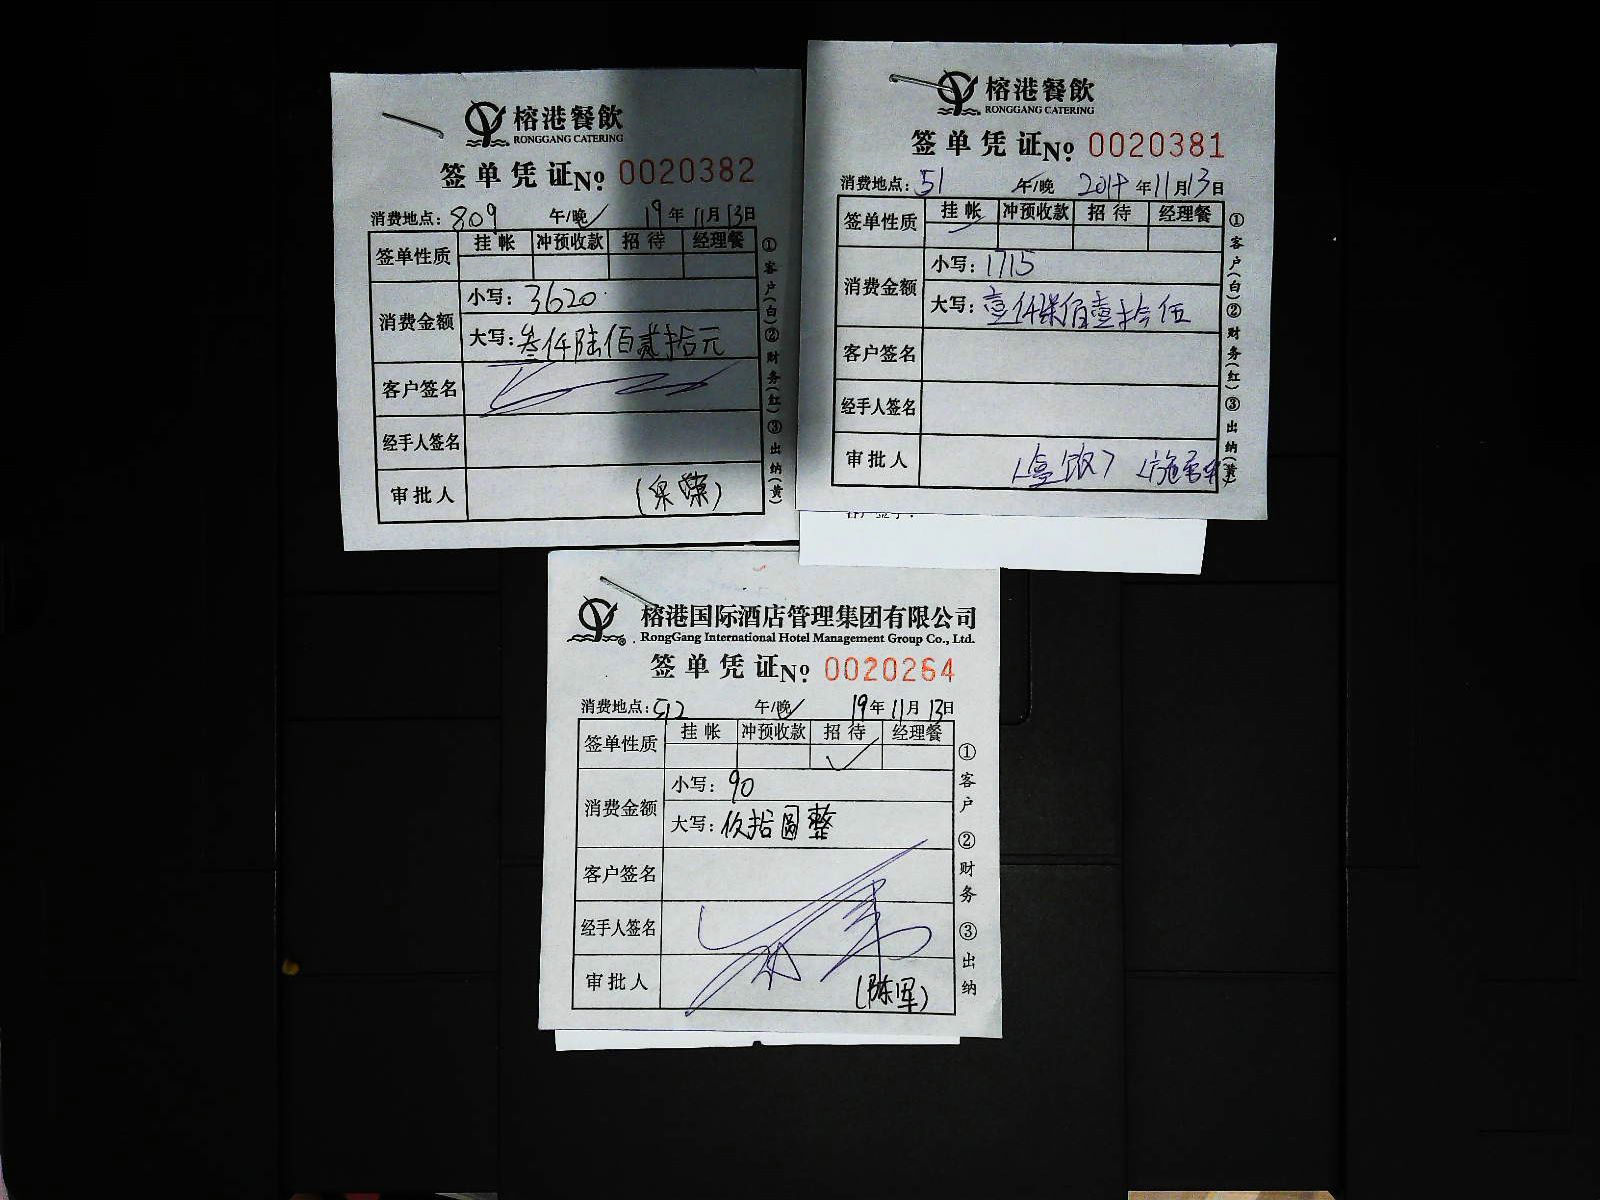 榕港餐飲
RONGGANG CATERING
签单凭证 No. 0020382
消费地点: 809 午/晚 19年11月13日
签单性质 挂帐 冲预收款 招待 经理餐
消费金额 小写: 3620
大写: 叁仟陆佰贰拾元
客户签名
经手人签名
审批人
①客户(白)②财务(红)③出纳(黄)
榕港餐飲
RONGGANG CATERING
签单凭证 No. 0020381
消费地点: 51 午/晚 2019年11月13日
签单性质 挂帐 冲预收款 招待 经理餐
消费金额 小写: 1715
大写: 壹仟柒佰壹拾伍
客户签名
经手人签名
审批人
①客户(白)②财务(红)③出纳(黄)
榕港国际酒店管理集团有限公司
RongGang International Hotel Management Group Co., Ltd.
签单凭证 No. 0020264
消费地点: 512 午/晚 19年11月13日
签单性质 挂帐 冲预收款 招待 经理餐
消费金额 小写: 90
大写: 玖拾圆整
客户签名
经手人签名
审批人 (陈军)
①客户 ②财务 ③出纳